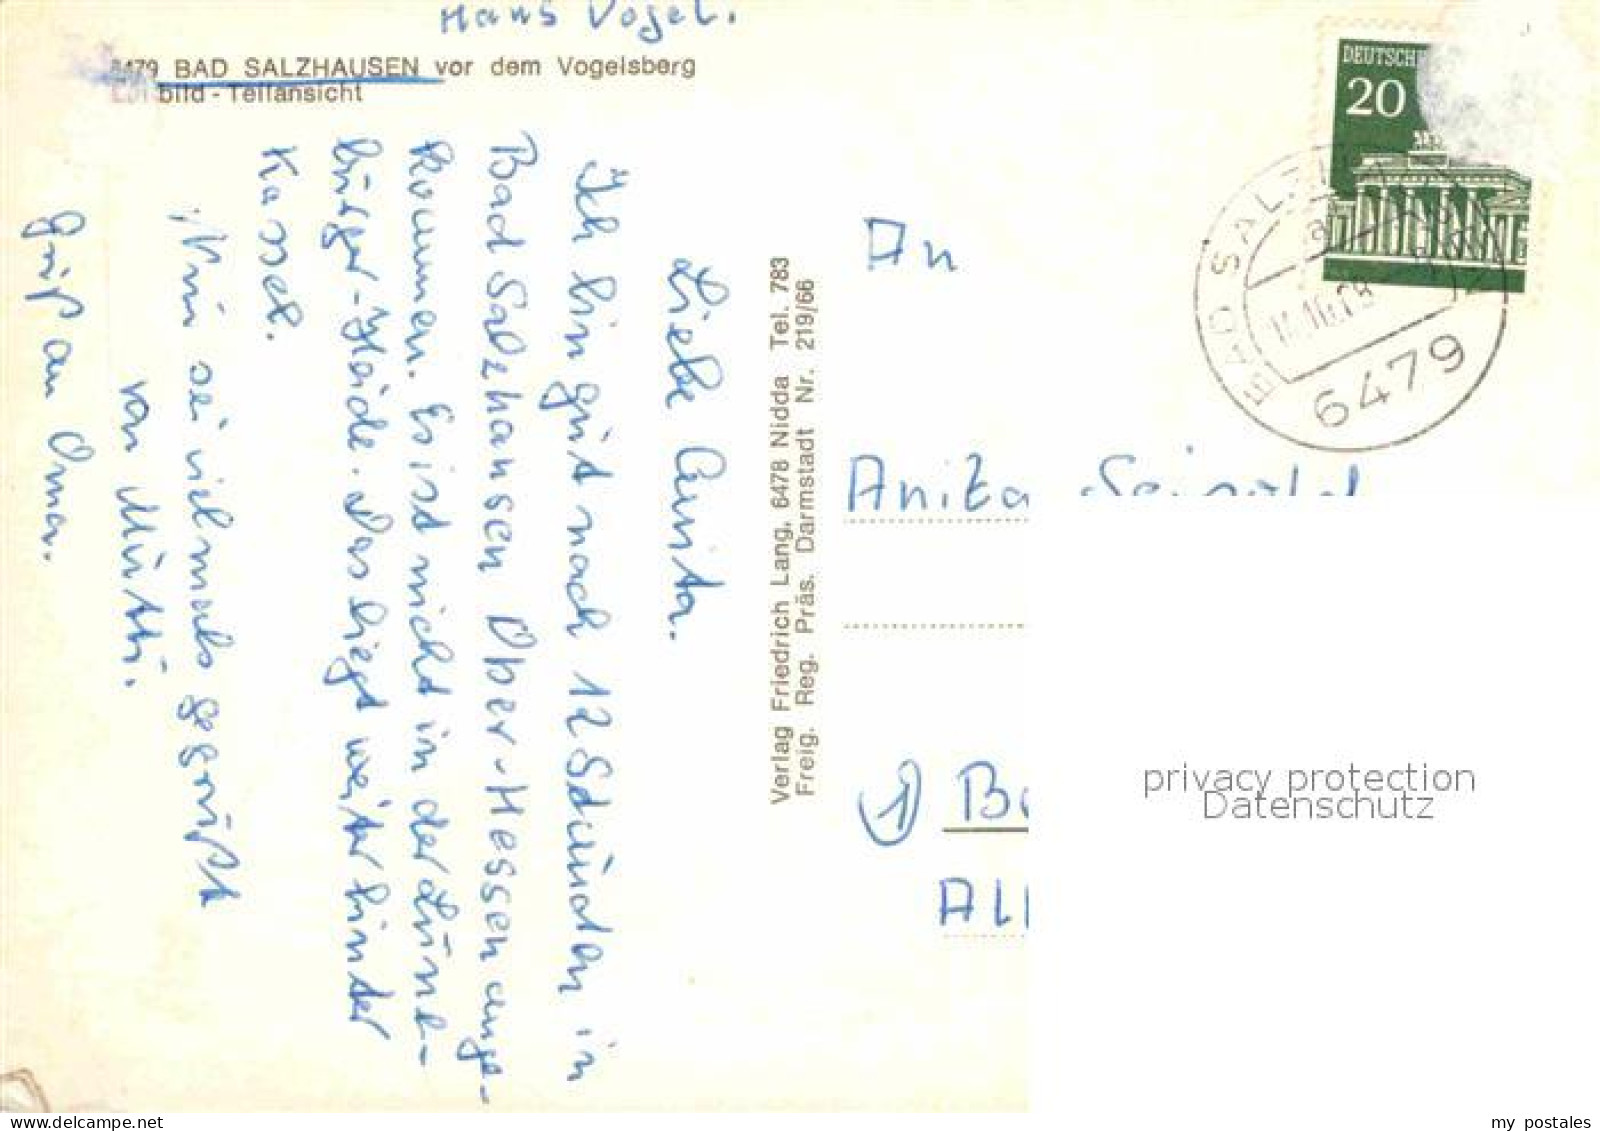 Hans Vogel.
6479 BAD SALZHAUSEN vor dem Vogelsberg
Luftbild - Teilansicht
Liebe Anita.
Ich bin gut nach 12 Stunden in
Bad Salzhausen Ober-Hessen ange-
kommen. Es ist nicht in der Lüne-
bürger-Heide. Das liegt weiter hinter
Kassel.
Nun sei vielmals gegrüßt
von Mutti.
Gruß an Oma.
Verlag Friedrich Lang, 6478 Nidda Tel. 783
Freig. Reg. Präs. Darmstadt Nr. 219/66
DEUTSCH
20
BAD SALZ
6479
An
Anita
1) B
All
privacy protection
Datenschutz
my postales